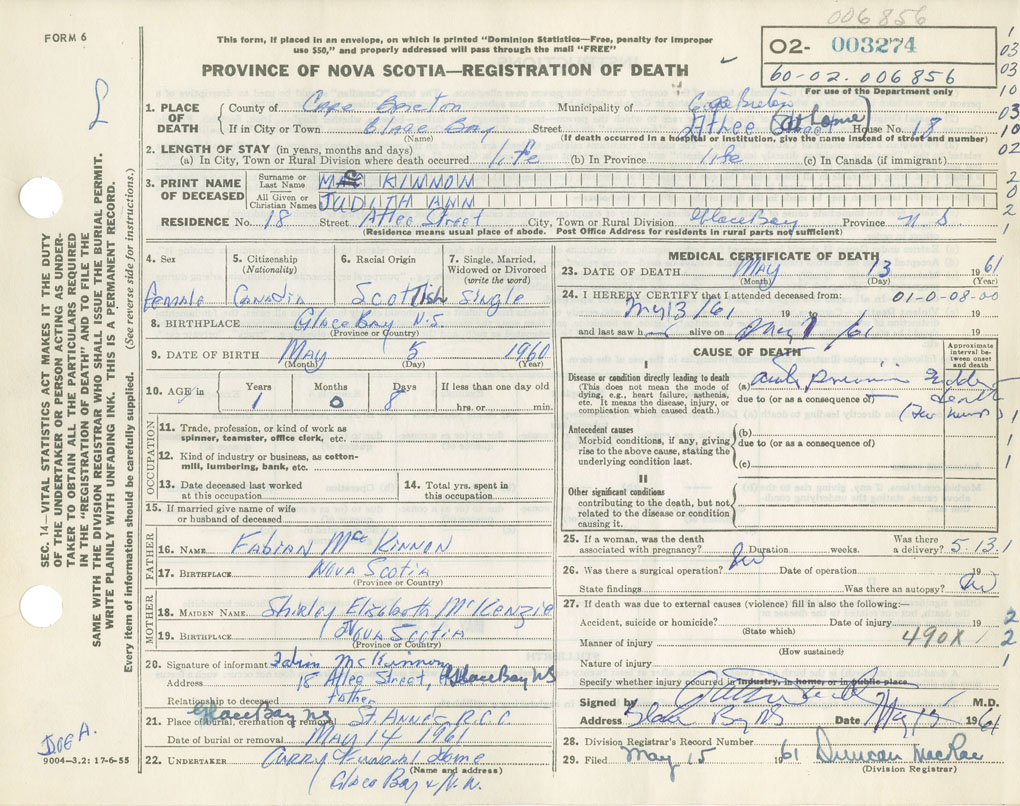 006856
FORM 6
This form, if placed in an envelope, on which is printed "Dominion Statistics—Free, penalty for improper
use $50," and properly addressed will pass through the mail "FREE"
PROVINCE OF NOVA SCOTIA—REGISTRATION OF DEATH
02- 003274
60-02-006856
For use of the Department only
1. PLACE OF DEATH
County of Cape Breton Municipality of Cape Breton
If in City or Town Glace Bay Street Atlee Street (at home) House No. 18
(Name) (If death occurred in a hospital or institution, give the name instead of street and number)
2. LENGTH OF STAY (in years, months and days)
(a) In City, Town or Rural Division where death occurred life (b) In Province life (c) In Canada (if immigrant)
3. PRINT NAME OF DECEASED
Surname or Last Name MAC KINNON
All Given or Christian Names JUDITH ANN
RESIDENCE No. 18 Street Atlee Street City, Town or Rural Division Glace Bay Province N S
(Residence means usual place of abode. Post Office Address for residents in rural parts not sufficient)
4. Sex
female
5. Citizenship
(Nationality)
Canadia
6. Racial Origin
Scottish
7. Single, Married,
Widowed or Divorced
(write the word)
Single
8. BIRTHPLACE Glace Bay N.S.
(Province or Country)
9. DATE OF BIRTH May 5 1960
(Month) (Day) (Year)
10. AGE in Years Months Days If less than one day old
1 0 8 hrs. or min.
OCCUPATION
11. Trade, profession, or kind of work as
spinner, teamster, office clerk, etc.
12. Kind of industry or business, as cotton-
mill, lumbering, bank, etc.
13. Date deceased last worked
at this occupation
14. Total yrs. spent in
this occupation
15. If married give name of wife
or husband of deceased
FATHER
16. NAME Fabian McKinnon
17. BIRTHPLACE Nova Scotia
(Province or Country)
MOTHER
18. MAIDEN NAME Shirley Elizabeth McKenzie
19. BIRTHPLACE Nova Scotia
(Province or Country)
20. Signature of informant Fabian McKinnon
Address 18 Atlee Street, Glace Bay NS
Relationship to deceased father
Glace Bay NS
21. Place of burial, cremation or removal St. Anne's R.C.C.
Date of burial or removal May 14 1961
22. UNDERTAKER Curry Funeral Home
(Name and address)
Glace Bay
MEDICAL CERTIFICATE OF DEATH
23. DATE OF DEATH May 13 1961
(Month) (Day) (Year)
24. I HEREBY CERTIFY that I attended deceased from: 01-0-08-00
May 13/61 19 to 19
and last saw h alive on May /61
CAUSE OF DEATH
Approximate
interval be-
tween onset
and death
I
Disease or condition directly leading to death
(This does not mean the mode of
dying, e.g., heart failure, asthenia,
etc. It means the disease, injury, or
complication which caused death.)
(a) acute
due to (or as a consequence of)
Antecedent causes
Morbid conditions, if any, giving
rise to the above cause, stating the
underlying condition last.
(b)
due to (or as a consequence of)
(c)
II
Other significant conditions
contributing to the death, but not
related to the disease or condition
causing it.
25. If a woman, was the death
associated with pregnancy? No Duration weeks. Was there
a delivery? 5.13.1
26. Was there a surgical operation? No Date of operation 19
State findings Was there an autopsy? No
27. If death was due to external causes (violence) fill in also the following:—
Accident, suicide or homicide? Date of injury 19
(State which)
Manner of injury 490X
(How sustained)
Nature of injury
Specify whether injury occurred in industry, in home, or in public place.
Signed by M.D.
Address Glace Bay NS Date May 1961
28. Division Registrar's Record Number
29. Filed May 15 1961 Duncan MacRae
(Division Registrar)
SEC. 14—VITAL STATISTICS ACT MAKES IT THE DUTY
OF THE UNDERTAKER OR PERSON ACTING AS UNDER-
TAKER TO OBTAIN ALL THE PARTICULARS REQUIRED
IN THE "REGISTRATION OF DEATH" AND TO FILE THE
SAME WITH THE DIVISION REGISTRAR WHO SHALL ISSUE THE BURIAL PERMIT.
WRITE PLAINLY WITH UNFADING INK. THIS IS A PERMANENT RECORD.
Every item of information should be carefully supplied. (See reverse side for instructions.)
9004—3.2: 17-6-55
1
03
03
10
03
10
02
2
0
2
1
1
1
1
2
2
1